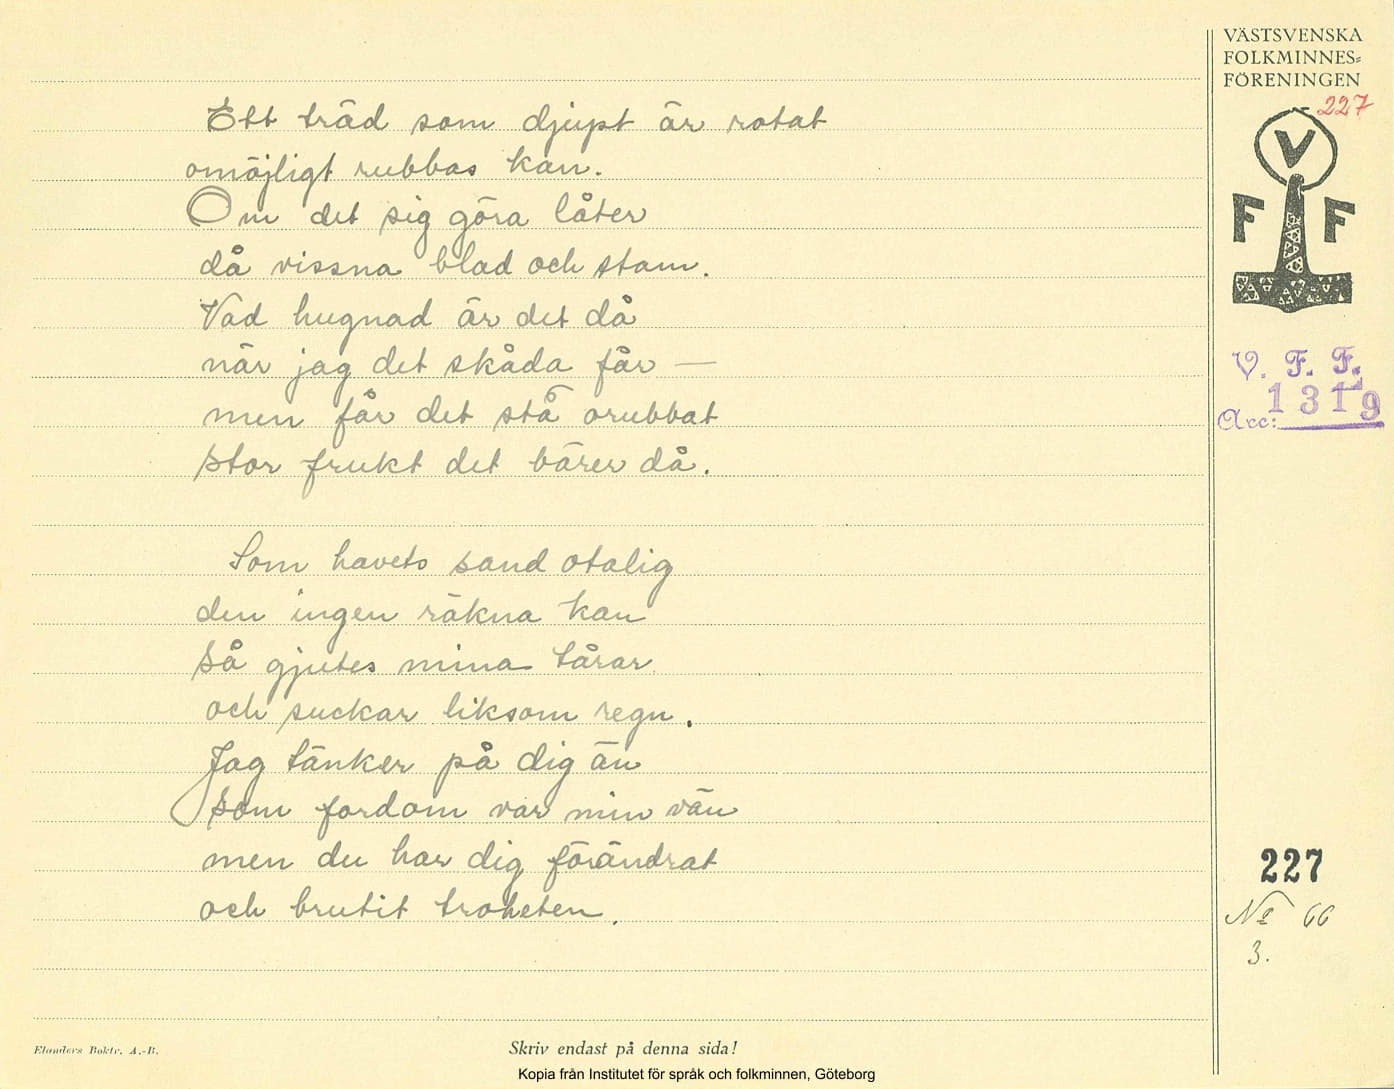 VÄSTSVENSKA
FOLKMINNES=
FÖRENINGEN
227
V
F F
V. F. F.
1319
Acc:
Ett träd som djupt är rotat
omöjligt rubbas kan.
Om det sig göra låter
då vissna blad och stam.
Vad hugnad är det då
när jag det skåda får —
men får det stå orubbat
stor frukt det bärer då.
Som havets sand otalig
den ingen räkna kan
så gjutes mina tårar
och suckar liksom regn.
Jag tänker på dig än
som fordom var min vän
men du har dig förändrat
och brutit troheten.
227
No 66
3.
Elanders Boktr. A.-B.
Skriv endast på denna sida!
Kopia från Institutet för språk och folkminnen, Göteborg